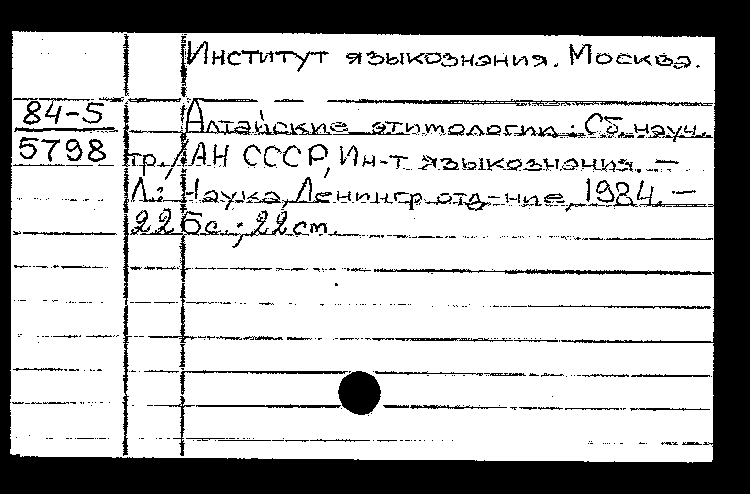 Институт языкознания. Москва.
84-5
5798
Алтайские этимологии: Сб. науч.
тр. / АН СССР, Ин-т языкознания. —
Л.: Наука, Ленингр. отд-ние, 1984. —
22 бс.; 22 см.